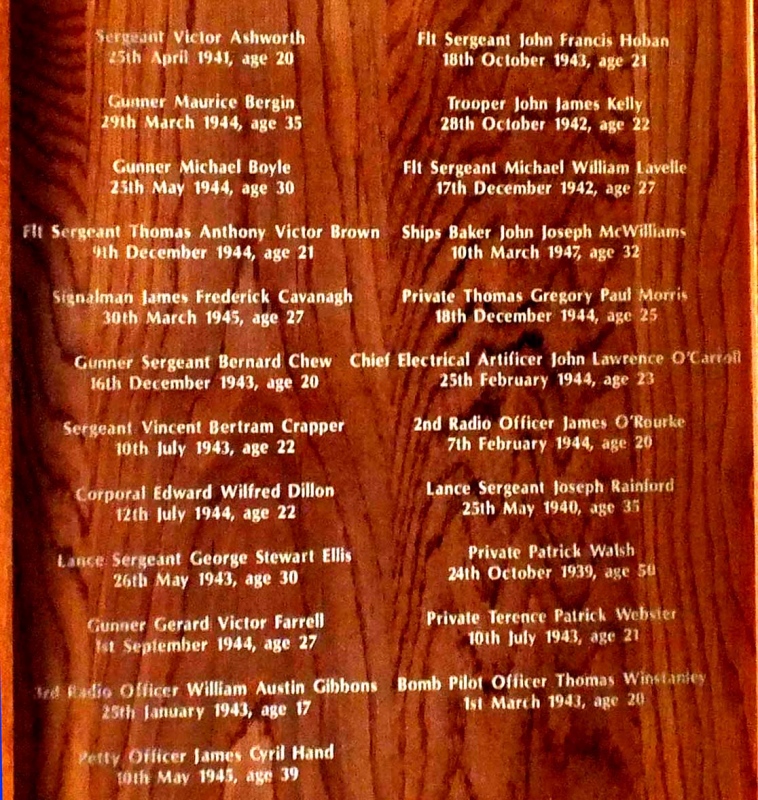 Sergeant Victor Ashworth
25th April 1941, age 20
Gunner Maurice Bergin
29th March 1944, age 35
Gunner Michael Boyle
25th May 1944, age 30
Flt Sergeant Thomas Anthony Victor Brown
9th December 1944, age 21
Signalman James Frederick Cavanagh
30th March 1945, age 27
Gunner Sergeant Bernard Chew
16th December 1943, age 20
Sergeant Vincent Bertram Crapper
10th July 1943, age 22
Corporal Edward Wilfred Dillon
12th July 1944, age 22
Lance Sergeant George Stewart Ellis
26th May 1943, age 30
Gunner Gerard Victor Farrell
1st September 1944, age 27
3rd Radio Officer William Austin Gibbons
25th January 1943, age 17
Petty Officer James Cyril Hand
10th May 1945, age 39
Flt Sergeant John Francis Hoban
18th October 1943, age 21
Trooper John James Kelly
28th October 1942, age 22
Flt Sergeant Michael William Lavelle
17th December 1942, age 27
Ships Baker John Joseph McWilliams
10th March 1947, age 32
Private Thomas Gregory Paul Morris
18th December 1944, age 25
Chief Electrical Artificer John Lawrence O'Carroll
25th February 1944, age 23
2nd Radio Officer James O'Rourke
7th February 1944, age 20
Lance Sergeant Joseph Rainford
25th May 1940, age 35
Private Patrick Walsh
24th October 1939, age 50
Private Terence Patrick Webster
10th July 1943, age 21
Bomb Pilot Officer Thomas Winstanley
1st March 1943, age 20